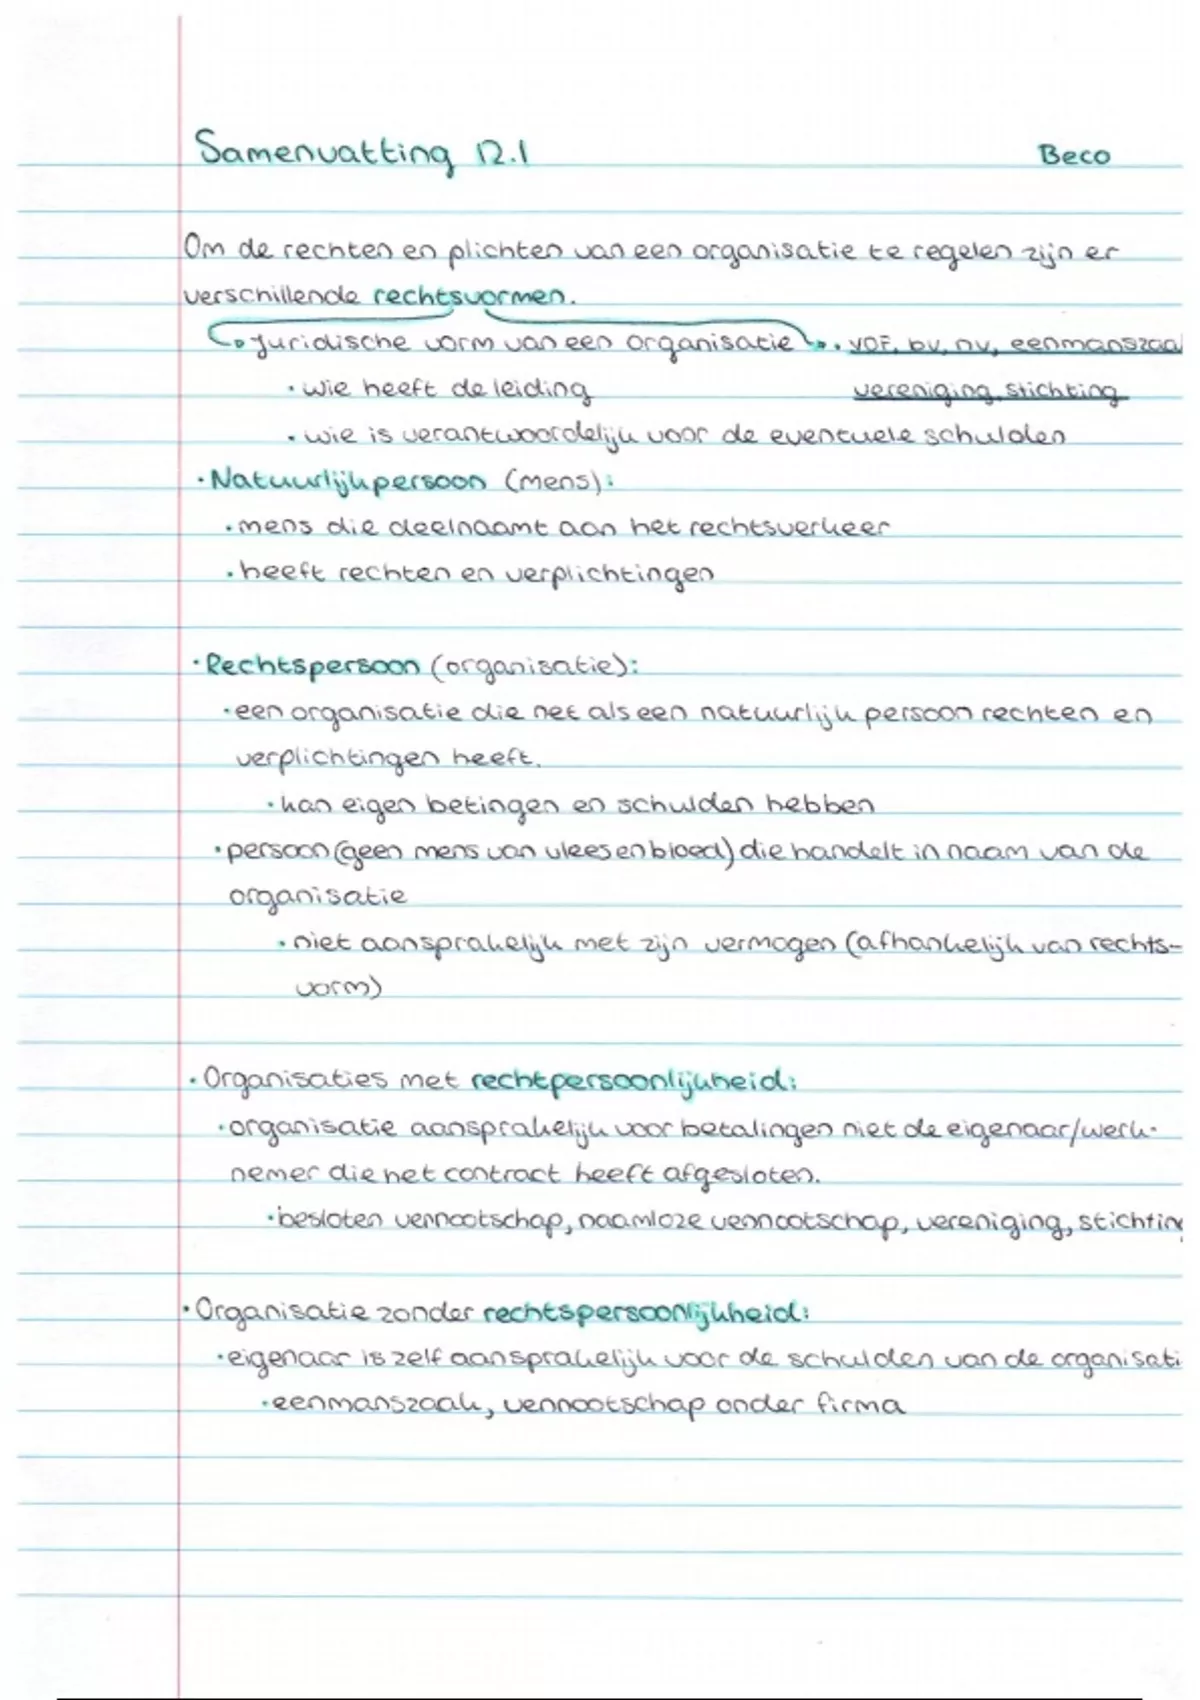 Samenvatting 12.1 Beco
Om de rechten en plichten van een organisatie te regelen zijn er
verschillende rechtsvormen.
Juridische vorm van een organisatie • VOF, bv, nv, eenmanszaa
• wie heeft de leiding vereniging, stichting
• wie is verantwoordelijk voor de eventuele schulden
• Natuurlijkpersoon (mens):
• mens die deelnaamt aan het rechtsverkeer
• heeft rechten en verplichtingen
• Rechtspersoon (organisatie):
• een organisatie die net als een natuurlijk persoon rechten en
verplichtingen heeft.
• kan eigen betingen en schulden hebben
• persoon (geen mens van vlees en bloed) die handelt in naam van de
organisatie
• niet aansprakelijk met zijn vermogen (afhankelijk van rechts-
vorm)
• Organisaties met rechtpersoonlijkheid:
• organisatie aansprakelijk voor betalingen niet de eigenaar/werk-
nemer die het contract heeft afgesloten.
• besloten vennootschap, naamloze vennootschap, vereniging, stichting
• Organisatie zonder rechtspersoonlijkheid:
• eigenaar is zelf aansprakelijk voor de schulden van de organisati
• eenmanszaak, vennootschap onder firma